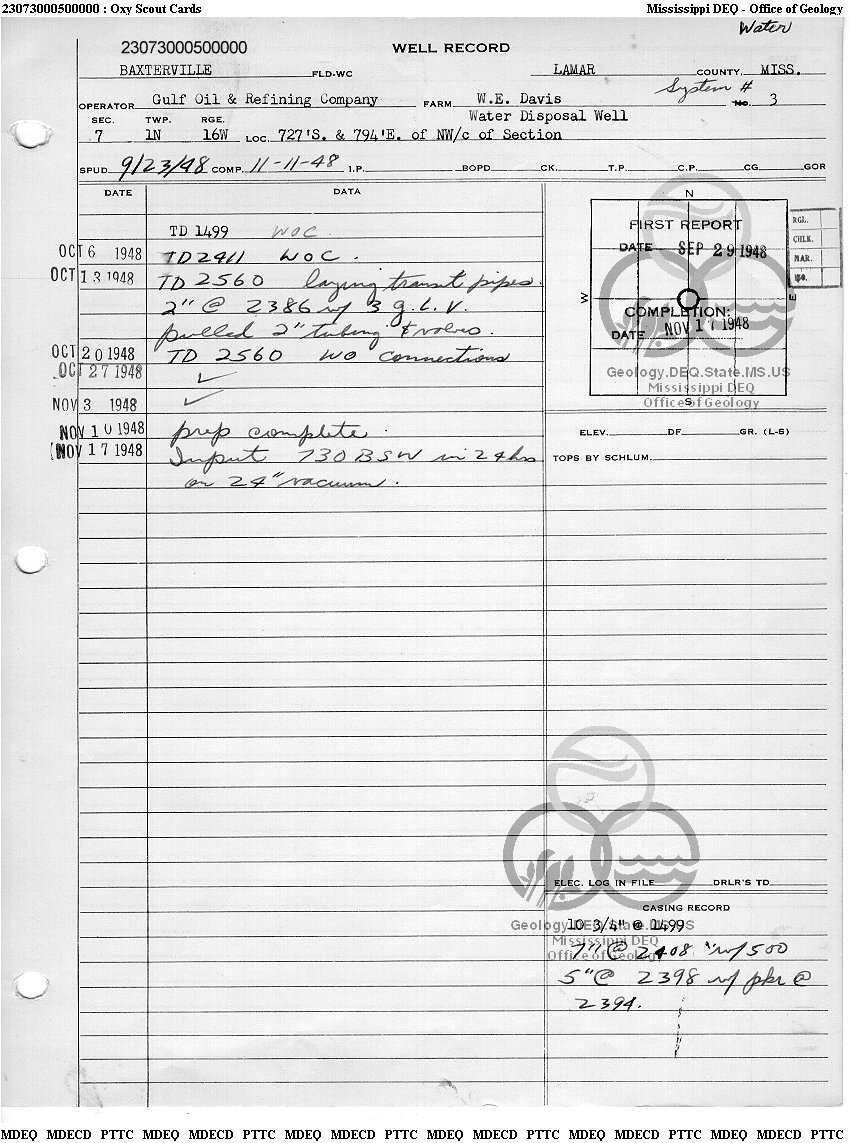 23073000500000 : Oxy Scout Cards Mississippi DEQ - Office of Geology
Water
23073000500000 WELL RECORD
BAXTERVILLE FLD-WC LAMAR COUNTY, MISS.
System #
OPERATOR Gulf Oil & Refining Company FARM W.E. Davis No. 3
SEC. TWP. RGE. Water Disposal Well
7 1N 16W LOC. 727'S. & 794'E. of NW/c of Section
SPUD 9/23/48 COMP. 11-11-48 I.P. BOPD CK. T.P. C.P. CG GOR
DATE DATA
N
W
E
S
FIRST REPORT
DATE SEP 29 1948
COMPLETION:
DATE NOV 17 1948
RGL.
CHLK.
MAR.
Geology.DEQ.State.MS.US
Mississippi DEQ
Office of Geology
TD 1499 WOC
OCT 6 1948 TD 2411 WOC.
OCT 13 1948 TD 2560 laying transit pipes.
2" @ 2386 w/ 3 g.l.v.
pulled 2" tubing & valves.
OCT 20 1948 TD 2560 WO connections
OCT 27 1948 ✓
NOV 3 1948 ✓
NOV 10 1948 prep complete.
NOV 17 1948 Input 730 BSW in 24 hrs
on 24" vacuum.
ELEV. DF. GR. (L-S)
TOPS BY SCHLUM.
ELEC. LOG IN FILE DRLR'S TD
CASING RECORD
10 3/4" @ 1499
Geology.DEQ.State.MS.US
Mississippi DEQ
Office of Geology
7" @ 2408 w/500
5" @ 2398 w/ pkr @
2394.
MDEQ MDECD PTTC MDEQ MDECD PTTC MDEQ MDECD PTTC MDEQ MDECD PTTC MDEQ MDECD PTTC MDEQ MDECD PTTC